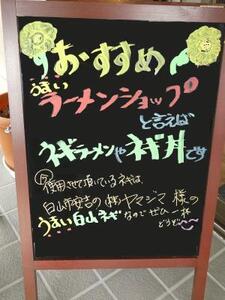 おすすめ
うまい
ラーメンショップ
と言えば
ネギラーメンやネギ丼です
今
使用させて頂いているネギは、
白山市安吉の(株)ヤマジマ様の
うまい白山ネギなのでぜひ一杯
どうぞ